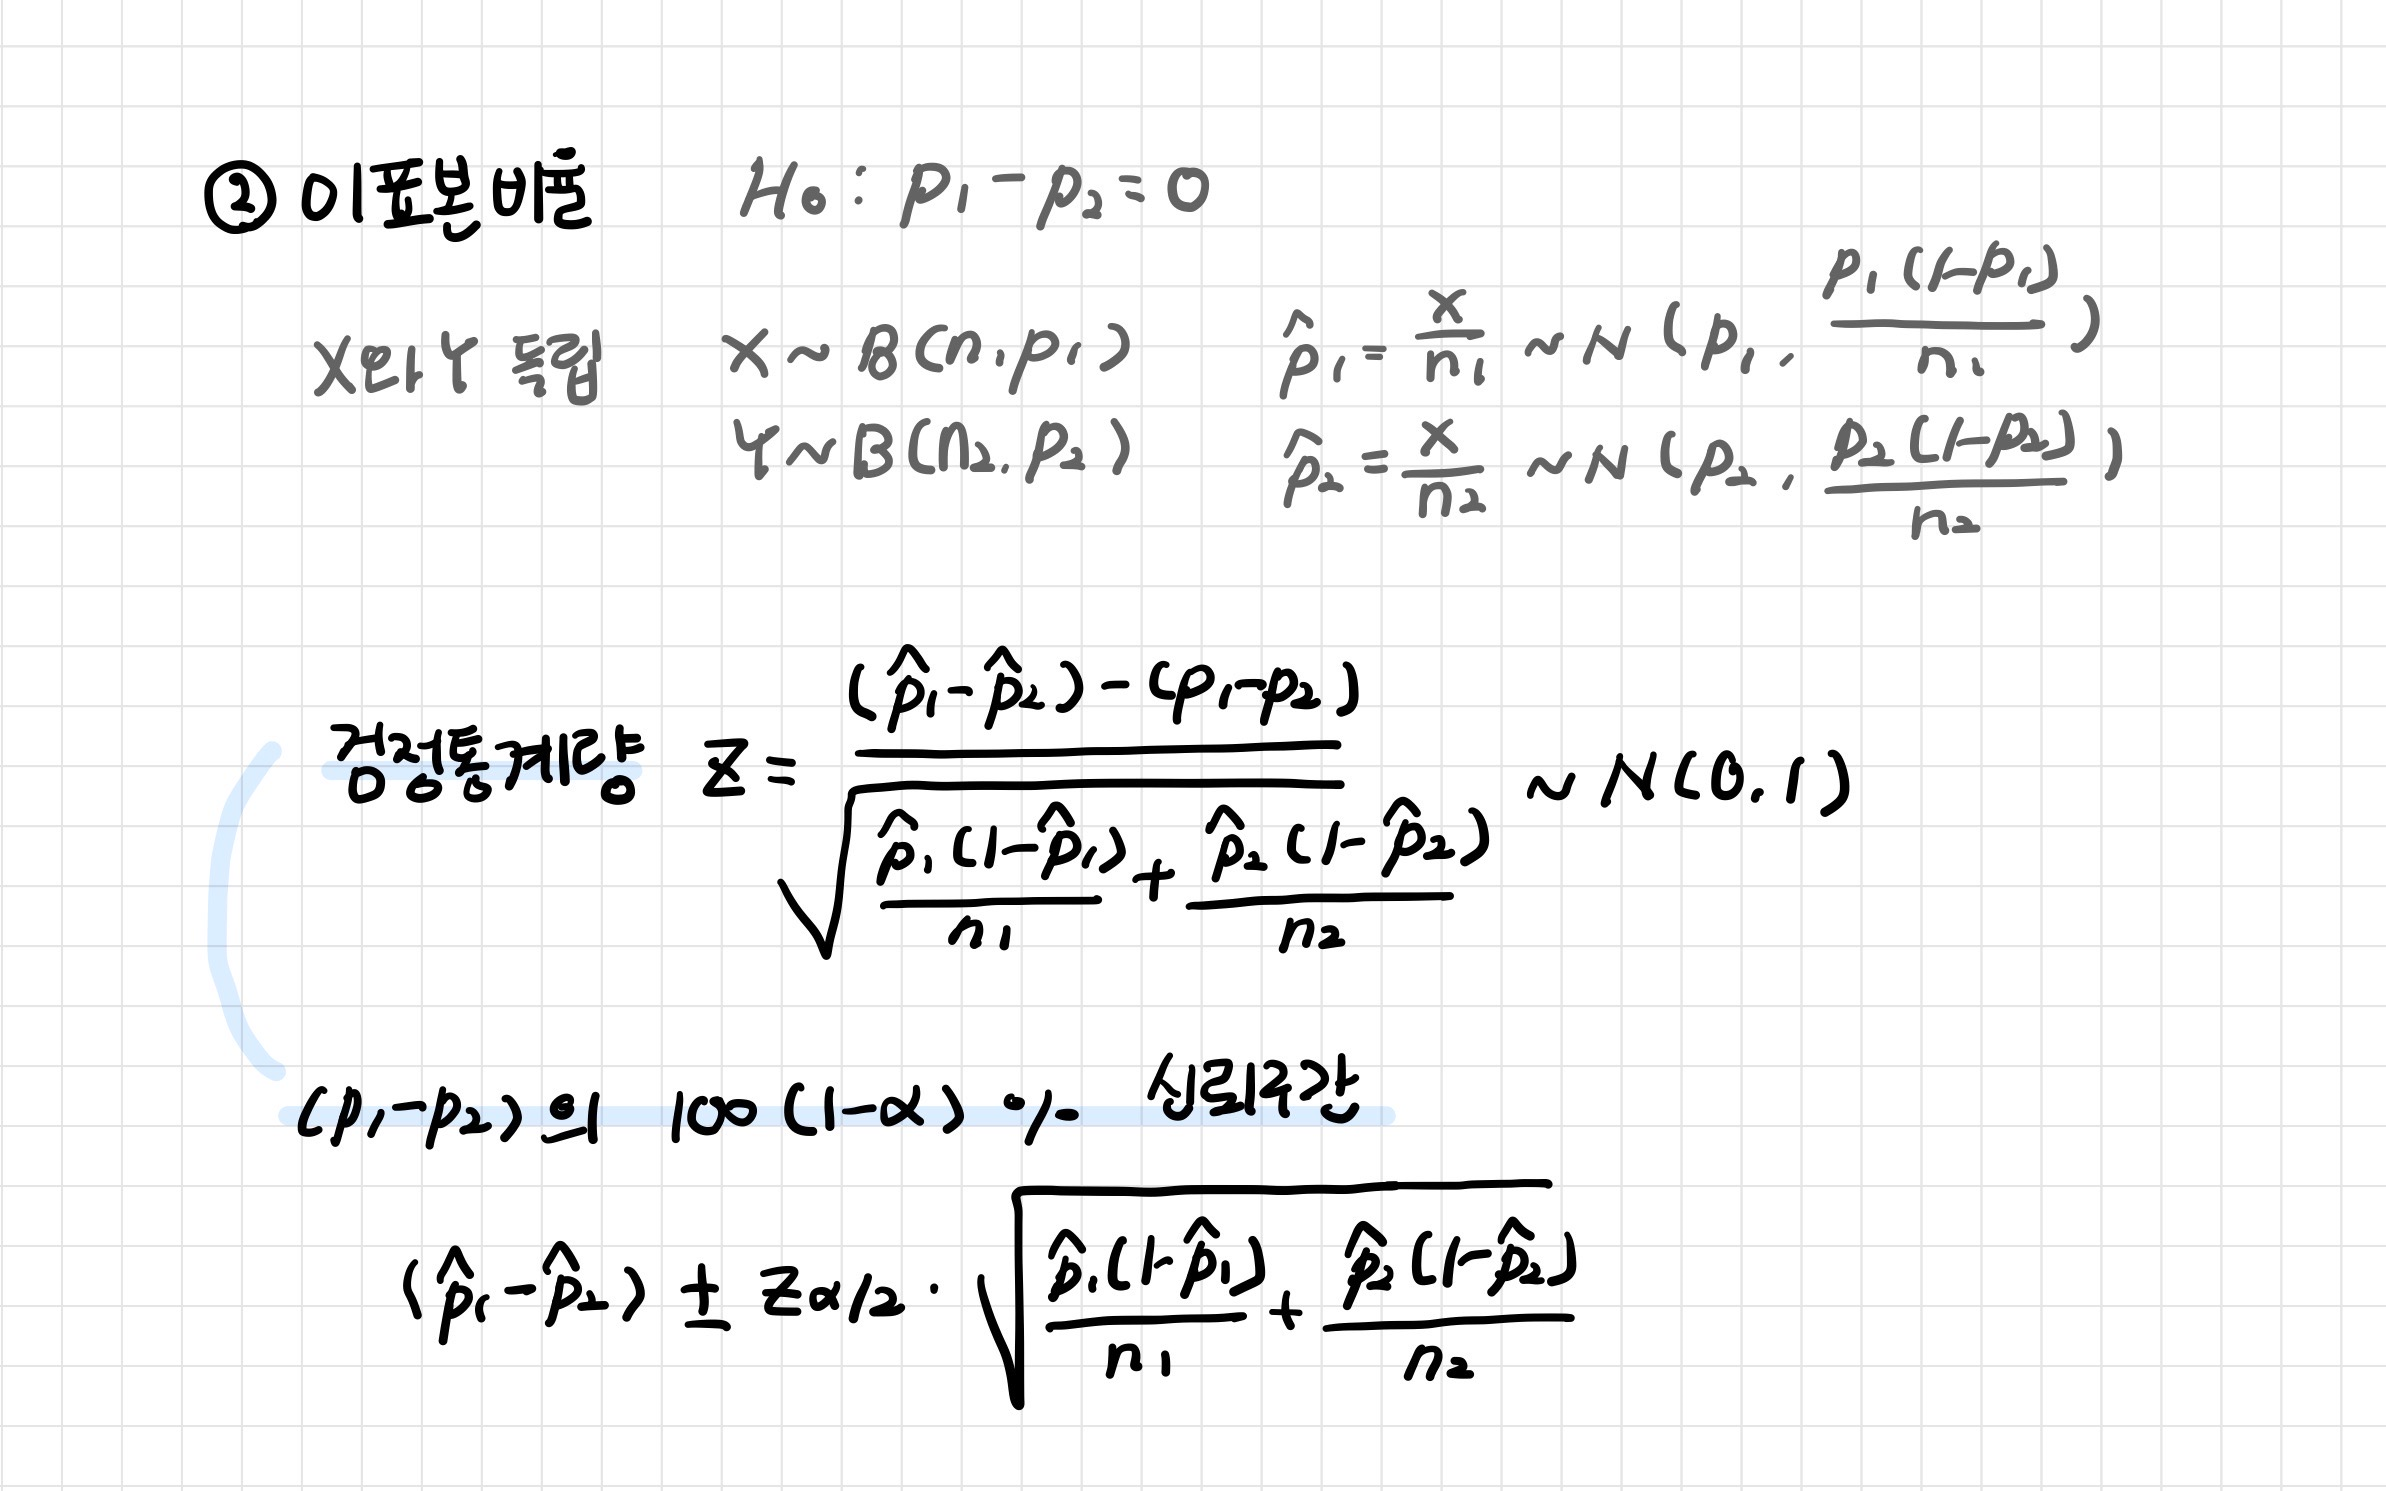 ② 이표본 비율 H₀ : p₁ - p₂ = 0
X와 Y 독립 X ~ B(n₁, p₁) p̂₁ = x/n₁ ~ N(p₁, p₁(1-p₁)/n₁)
Y ~ B(n₂, p₂) p̂₂ = x/n₂ ~ N(p₂, p₂(1-p₂)/n₂)
검정통계량 Z = ((p̂₁ - p̂₂) - (p₁ - p₂)) / √(p̂₁(1-p̂₁)/n₁ + p̂₂(1-p̂₂)/n₂) ~ N(0, 1)
(p₁ - p₂)의 100(1-α)% 신뢰구간
(p̂₁ - p̂₂) ± Z α/2 · √(p̂₁(1-p̂₁)/n₁ + p̂₂(1-p̂₂)/n₂)